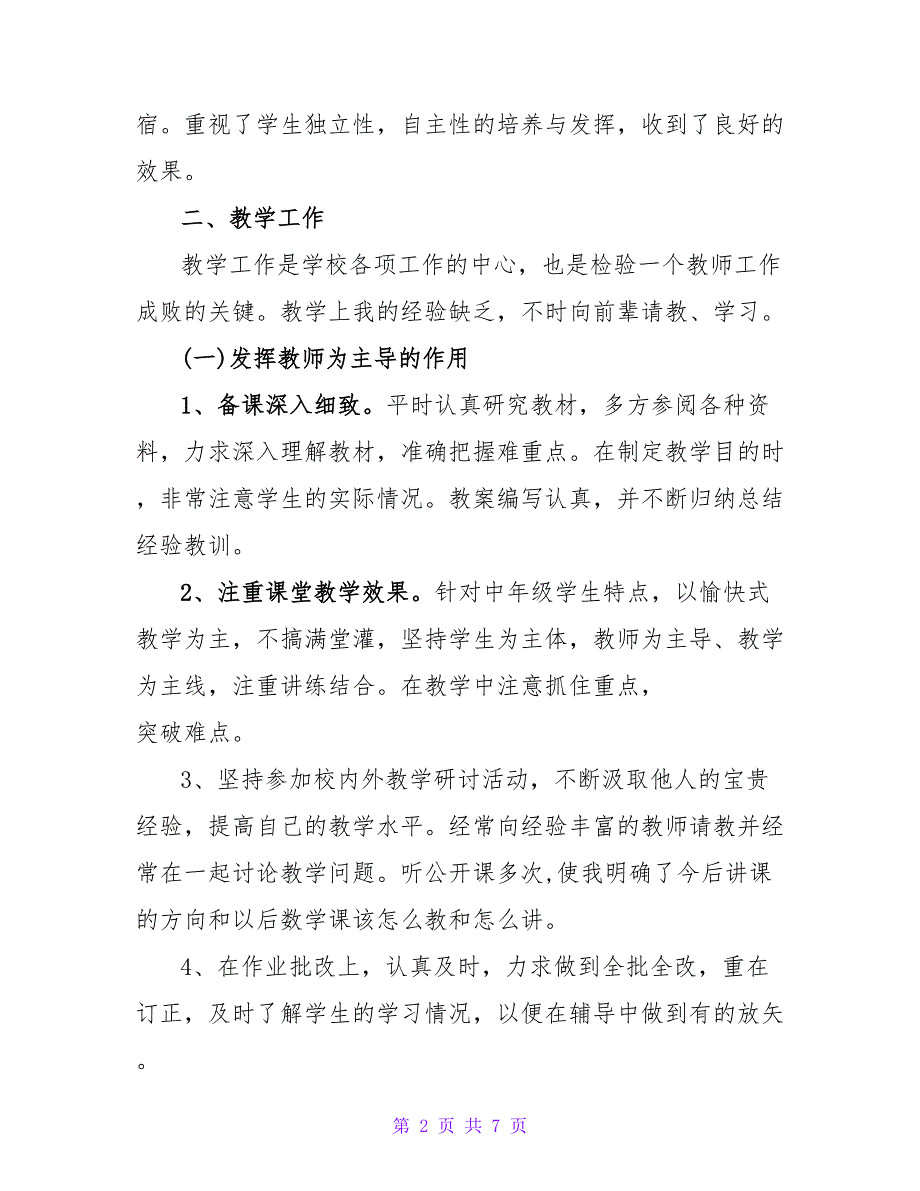 宿。重视了学生独立性，自主性的培养与发挥，收到了良好的
效果。
二、教学工作
教学工作是学校各项工作的中心，也是检验一个教师工作
成败的关键。教学上我的经验缺乏，不时向前辈请教、学习。
(一)发挥教师为主导的作用
1、备课深入细致。平时认真研究教材，多方参阅各种资
料，力求深入理解教材，准确把握难重点。在制定教学目的时
，非常注意学生的实际情况。教案编写认真，并不断归纳总结
经验教训。
2、注重课堂教学效果。针对中年级学生特点，以愉快式
教学为主，不搞满堂灌，坚持学生为主体，教师为主导、教学
为主线，注重讲练结合。在教学中注意抓住重点，
突破难点。
3、坚持参加校内外教学研讨活动，不断汲取他人的宝贵
经验，提高自己的教学水平。经常向经验丰富的教师请教并经
常在一起讨论教学问题。听公开课多次,使我明确了今后讲课
的方向和以后数学课该怎么教和怎么讲。
4、在作业批改上，认真及时，力求做到全批全改，重在
订正，及时了解学生的学习情况，以便在辅导中做到有的放矢
。
第 2 页 共 7 页